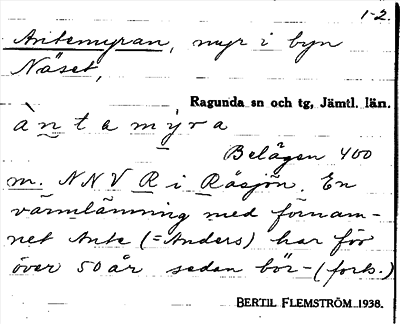 1-2.
Antemyran, myr i byn
Näset,
Ragunda sn och tg, Jämtl. län.
àntemýra
Belägen 400
m. NNV R i Råsjön. En
värmlänning med förnam-
net Ante (= Anders) har för
över 50 år sedan bör- (forts.)
BERTIL FLEMSTRÖM 1938.